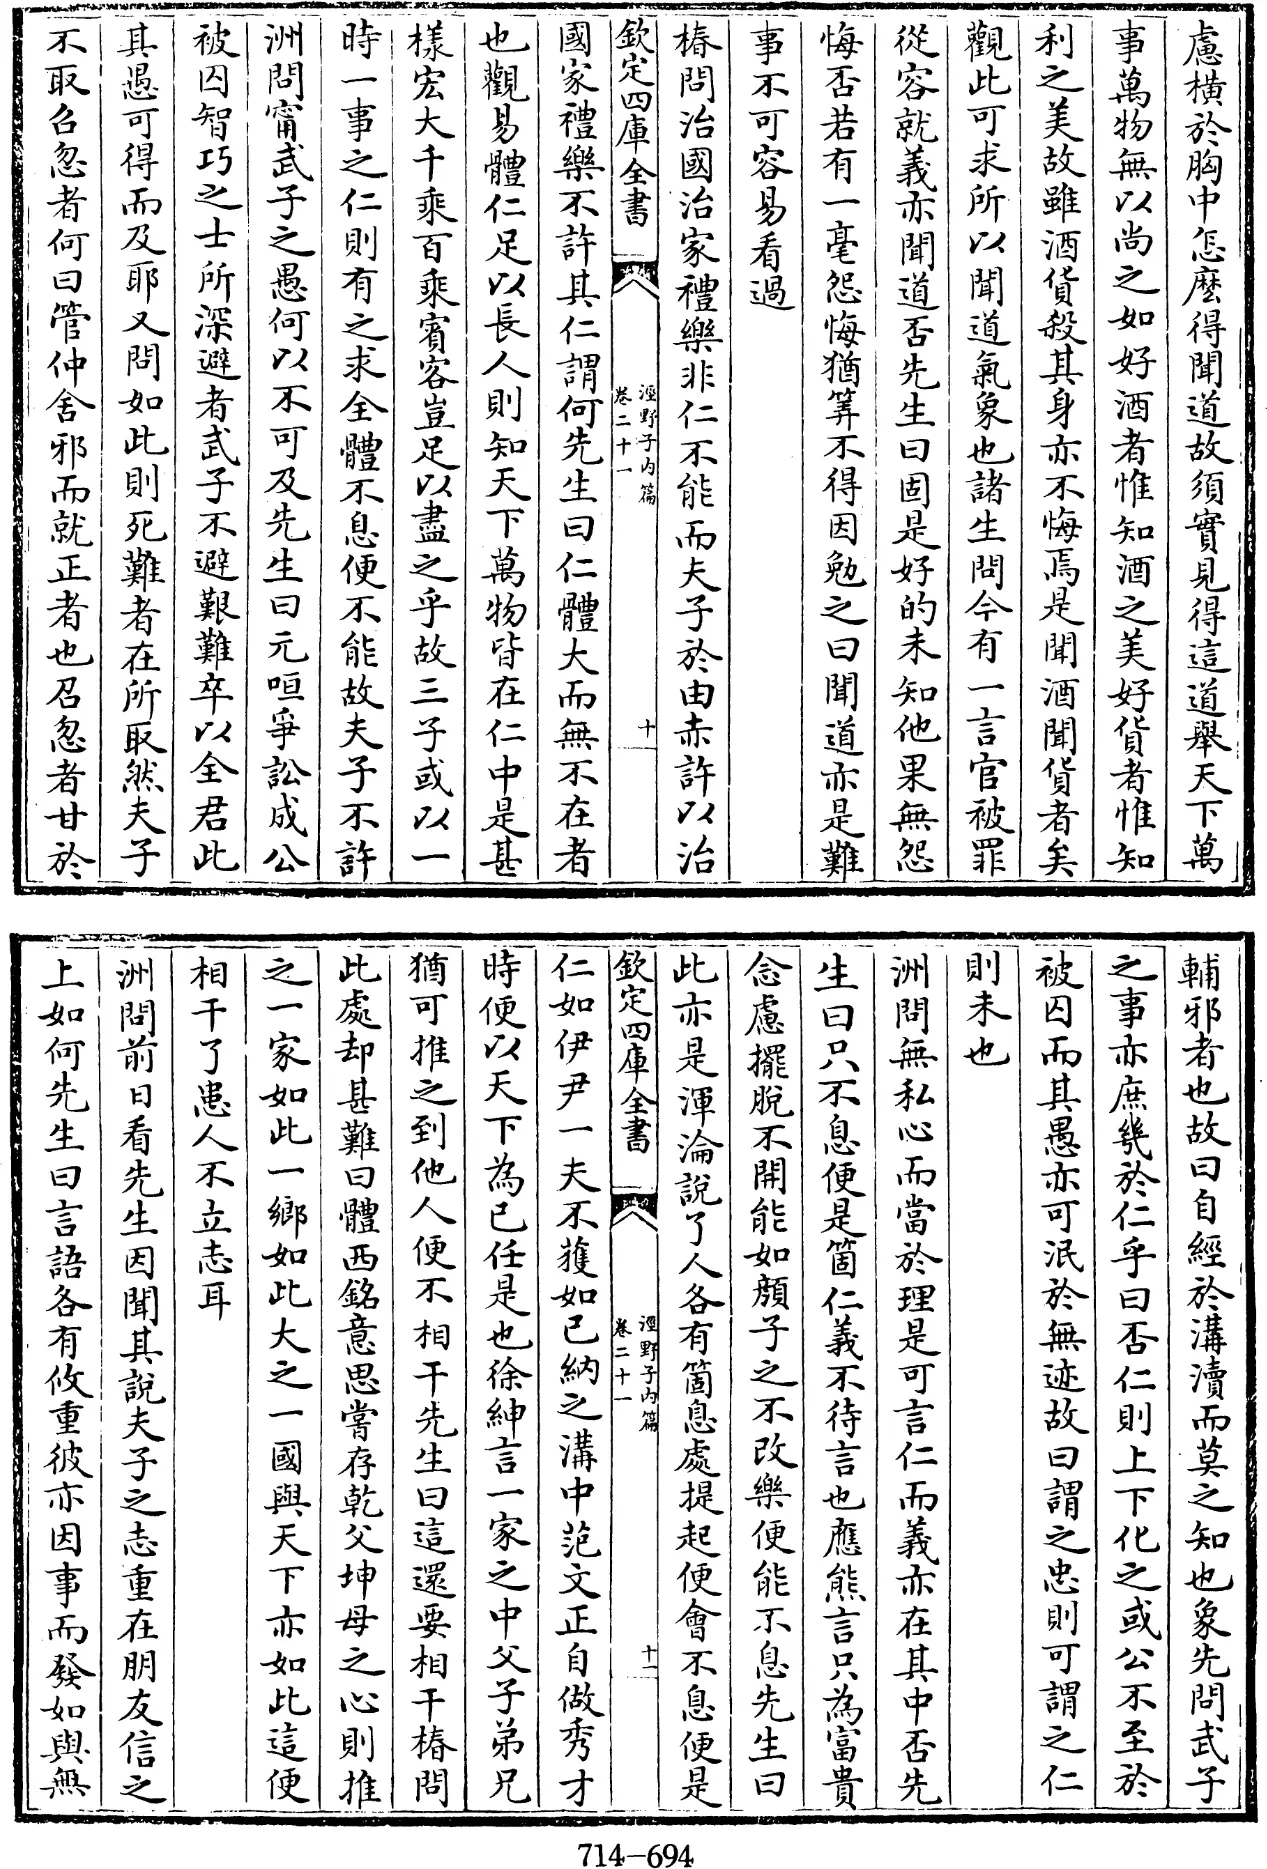 慮橫於胸中怎麽得聞道故須實見得這道舉天下萬
事萬物無以尚之如好酒者惟知酒之美好貨者惟知
利之美故雖酒貨殺其身亦不悔焉是聞酒聞貨者矣
觀此可求所以聞道氣象也諸生問今有一言官被罪
從容就義亦聞道否先生曰固是好的未知他果無怨
悔否若有一毫怨悔猶筭不得因勉之曰聞道亦是難
事不可容易看過
椿問治國治家禮樂非仁不能而夫子於由赤許以治
欽定四庫全書
涇野子内篇
卷二十一
十
國家禮樂不許其仁謂何先生曰仁體大而無不在者
也觀易體仁足以長人則知天下萬物皆在仁中是甚
樣宏大千乘百乘賓客豈足以盡之乎故三子或以一
時一事之仁則有之求全體不息便不能故夫子不許
洲問甯武子之愚何以不可及先生曰元咺爭訟成公
被囚智巧之士所深避者武子不避艱難卒以全君此
其愚可得而及耶又問如此則死難者在所取然夫子
不取召忽者何曰管仲舍邪而就正者也召忽者甘於
輔邪者也故曰自經於溝瀆而莫之知也象先問武子
之事亦庶幾於仁乎曰否仁則上下化之或公不至於
被囚而其愚亦可泯於無迹故曰謂之忠則可謂之仁
則未也
洲問無私心而當於理是可言仁而義亦在其中否先
生曰只不息便是箇仁義不待言也應熊言只為富貴
念慮擺脫不開能如顏子之不改樂便能不息先生曰
此亦是渾淪說了人各有箇息處提起便會不息便是
欽定四庫全書
涇野子内篇
卷二十一
十一
仁如伊尹一夫不獲如已納之溝中范文正自做秀才
時便以天下為已任是也徐紳言一家之中父子弟兄
猶可推之到他人便不相干先生曰這還要相干椿問
此處却甚難曰體西銘意思嘗存乾父坤母之心則推
之一家如此一鄉如此大之一國與天下亦如此這便
相干了患人不立志耳
洲問前日看先生因聞其說夫子之志重在朋友信之
上如何先生曰言語各有攸重彼亦因事而發如與無
714-694